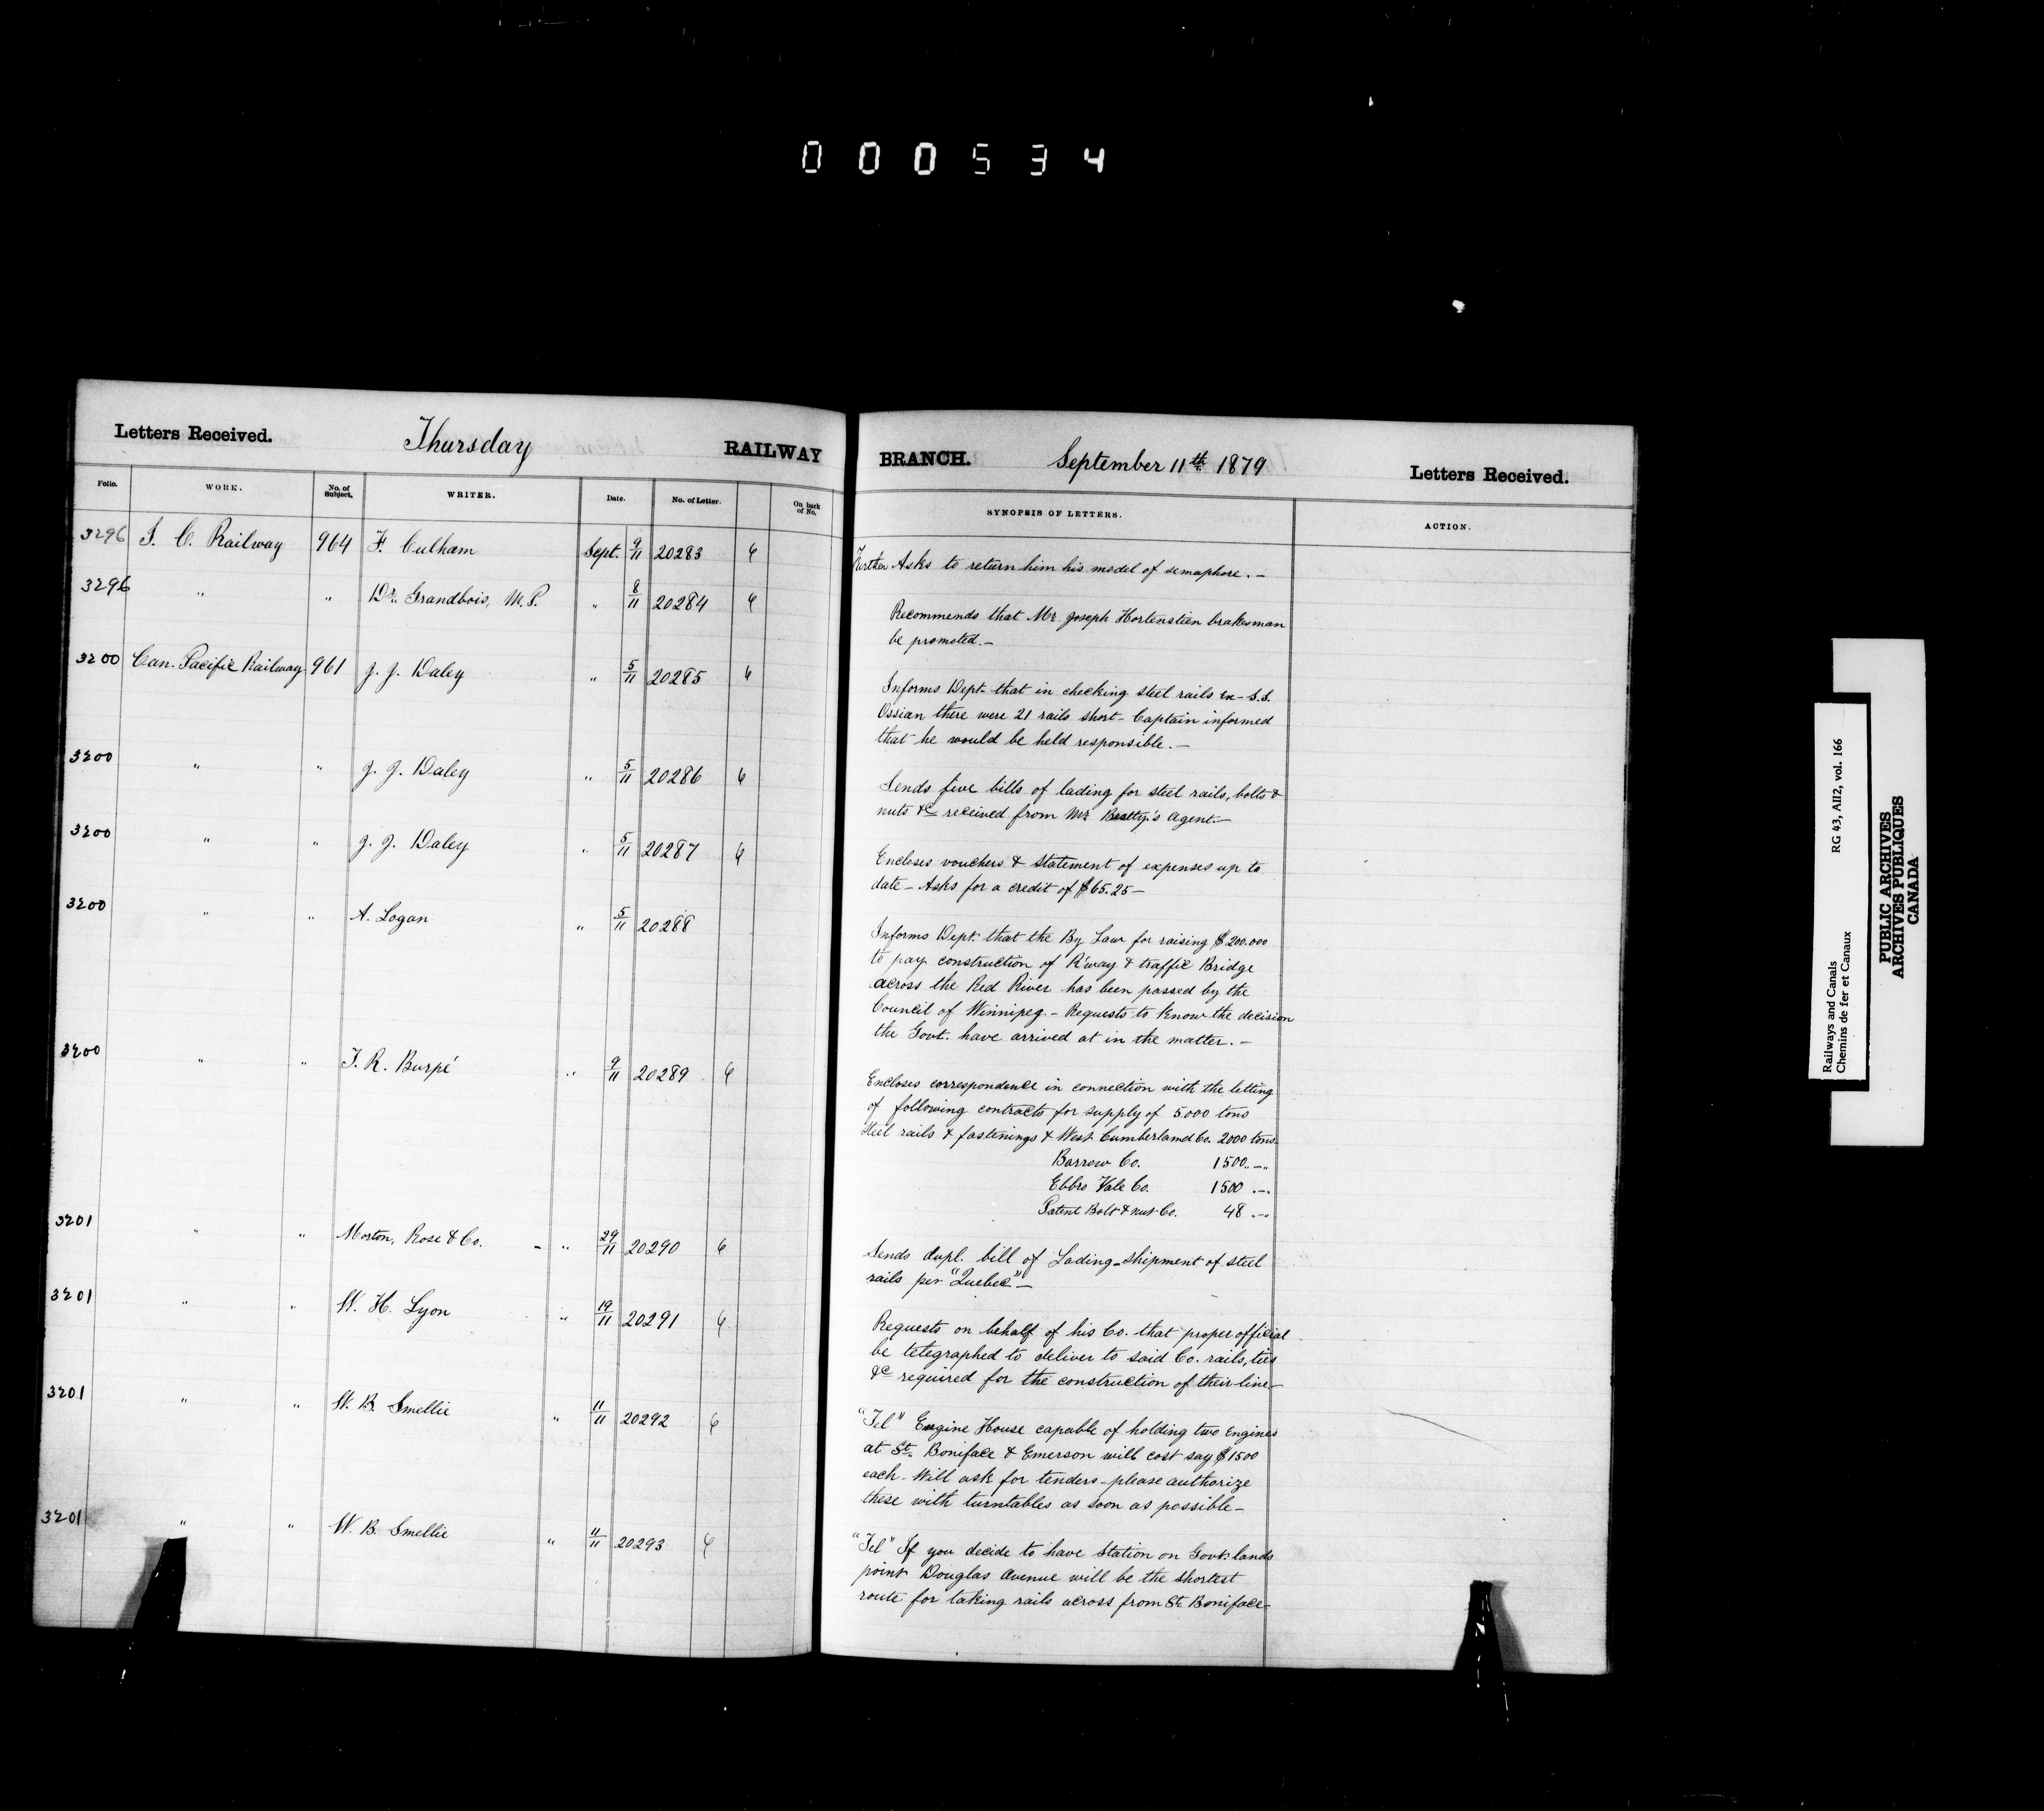 000534
Letters Received. Thursday RAILWAY
BRANCH. September 11th 1879 Letters Received.
Folio. WORK. No. of Subject. WRITER. Date. No. of Letter. On back of No.
SYNOPSIS OF LETTERS. ACTION.
3296 I. C. Railway 964 F. Culham Sept. 9/11 20283 6
Further Asks to return him his model of semaphore. —
3296 " " Dr. Grandbois, M.P. " 8/11 20284 6
Recommends that Mr Joseph Hortenstien brakesman
be promoted. —
3200 Can. Pacific Railway 961 J. J. Daley " 5/11 20285 6
Informs Dept. that in checking steel rails ex-S.S.
Ossian there were 21 rails short - Captain informed
that he would be held responsible. —
3200 " " J. J. Daley " 5/11 20286 6
Sends five bills of lading for steel rails, bolts &
nuts &c received from Mr Beatty's agent. —
3200 " " J. J. Daley " 5/11 20287 6
Encloses vouchers & statement of expenses up to
date — Asks for a credit of $65.25 —
3200 " " A. Logan " 5/11 20288
Informs Dept. that the By Law for raising $200.000
to pay construction of R'way & traffic Bridge
across the Red River has been passed by the
Council of Winnipeg. - Requests to know the decision
the Govt. have arrived at in the matter. —
3200 " " T. R. Burpé " 9/11 20289 6
Encloses correspondence in connection with the letting
of following contracts for supply of 5000 tons
steel rails & fastenings & West Cumberland Co. 2000 tons
Barrow Co. 1500 " — "
Ebbro Vale Co. 1500 " — "
Patent Bolt & nut Co. 48 " — "
3201 " " Morton, Rose & Co. - " 29/11 20290 6
Sends dupl. bill of Lading - shipment of steel
rails per "Quebec" —
3201 " " W. H. Lyon " 19/11 20291 6
Requests on behalf of his Co. that proper official
be telegraphed to deliver to said Co. rails, ties
&c required for the construction of their line —
3201 " " W. B. Smellie " 11/11 20292 6
"Tel" Engine House capable of holding two Engines
at St. Boniface & Emerson will cost say $1500
each - Will ask for tenders - please authorize
these with turntables as soon as possible —
3201 " " W. B. Smellie " 11/11 20293 6
"Tel" If you decide to have Station on Govt. lands
point Douglas Avenue will be the shortest
route for taking rails across from St. Boniface —
Railways and Canals RG 43, AII2, vol. 166
Chemins de fer et Canaux
PUBLIC ARCHIVES
ARCHIVES PUBLIQUES
CANADA